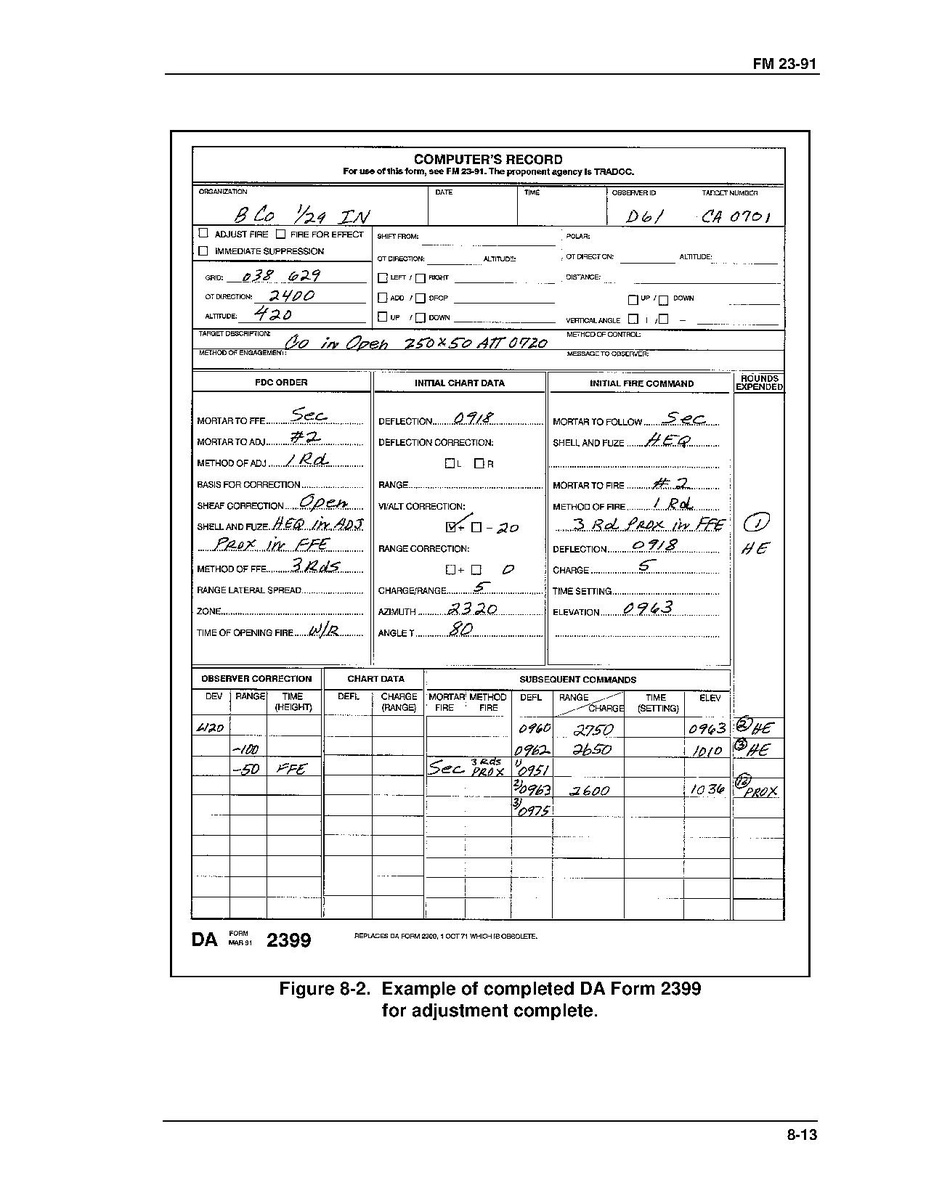 FM 23-91
COMPUTER'S RECORD
For use of this form, see FM 23-91. The proponent agency is TRADOC.
ORGANIZATION DATE TIME OBSERVER ID TARGET NUMBER
B Co 1/29 IN D61 CA 0701
ADJUST FIRE FIRE FOR EFFECT
IMMEDIATE SUPPRESSION
GRID: 038 629
OT DIRECTION: 2400
ALTITUDE: 420
SHIFT FROM:
OT DIRECTION: ALTITUDE:
LEFT / RIGHT
ADD / DROP
UP / DOWN
POLAR:
OT DIRECTION: ALTITUDE:
DISTANCE:
UP / DOWN
VERTICAL ANGLE + / -
TARGET DESCRIPTION: Co in Open 250x50 ATT 0720
METHOD OF CONTROL:
METHOD OF ENGAGEMENT:
MESSAGE TO OBSERVER:
FDC ORDER
MORTAR TO FFE Sec
MORTAR TO ADJ #2
METHOD OF ADJ 1 Rd
BASIS FOR CORRECTION
SHEAF CORRECTION Open
SHELL AND FUZE HEQ in ADJ
PROX in FFE
METHOD OF FFE 3 Rds
RANGE LATERAL SPREAD
ZONE
TIME OF OPENING FIRE W/R
INITIAL CHART DATA
DEFLECTION 0918
DEFLECTION CORRECTION:
L R
RANGE
VI/ALT CORRECTION:
+ - 20
RANGE CORRECTION:
+ 0
CHARGE/RANGE 5
AZIMUTH 2320
ANGLE T 80
INITIAL FIRE COMMAND
MORTAR TO FOLLOW Sec
SHELL AND FUZE HEQ
MORTAR TO FIRE #2
METHOD OF FIRE 1 Rd
3 Rd PROX in FFE
DEFLECTION 0918
CHARGE 5
TIME SETTING
ELEVATION 0963
ROUNDS EXPENDED
1
HE
OBSERVER CORRECTION CHART DATA SUBSEQUENT COMMANDS
DEV RANGE TIME (HEIGHT) DEFL CHARGE (RANGE) MORTAR FIRE METHOD FIRE DEFL RANGE CHARGE TIME (SETTING) ELEV
L120 0960 2750 0963 2 HE
-100 0962 2650 1010 3 HE
-50 FFE Sec 3 Rds PROX 1/ 0951
2/ 0963 2600 1036 12 PROX
3/ 0975
DA FORM MAR 91 2399
REPLACES DA FORM 2399, 1 OCT 71 WHICH IS OBSOLETE.
Figure 8-2. Example of completed DA Form 2399
for adjustment complete.
8-13